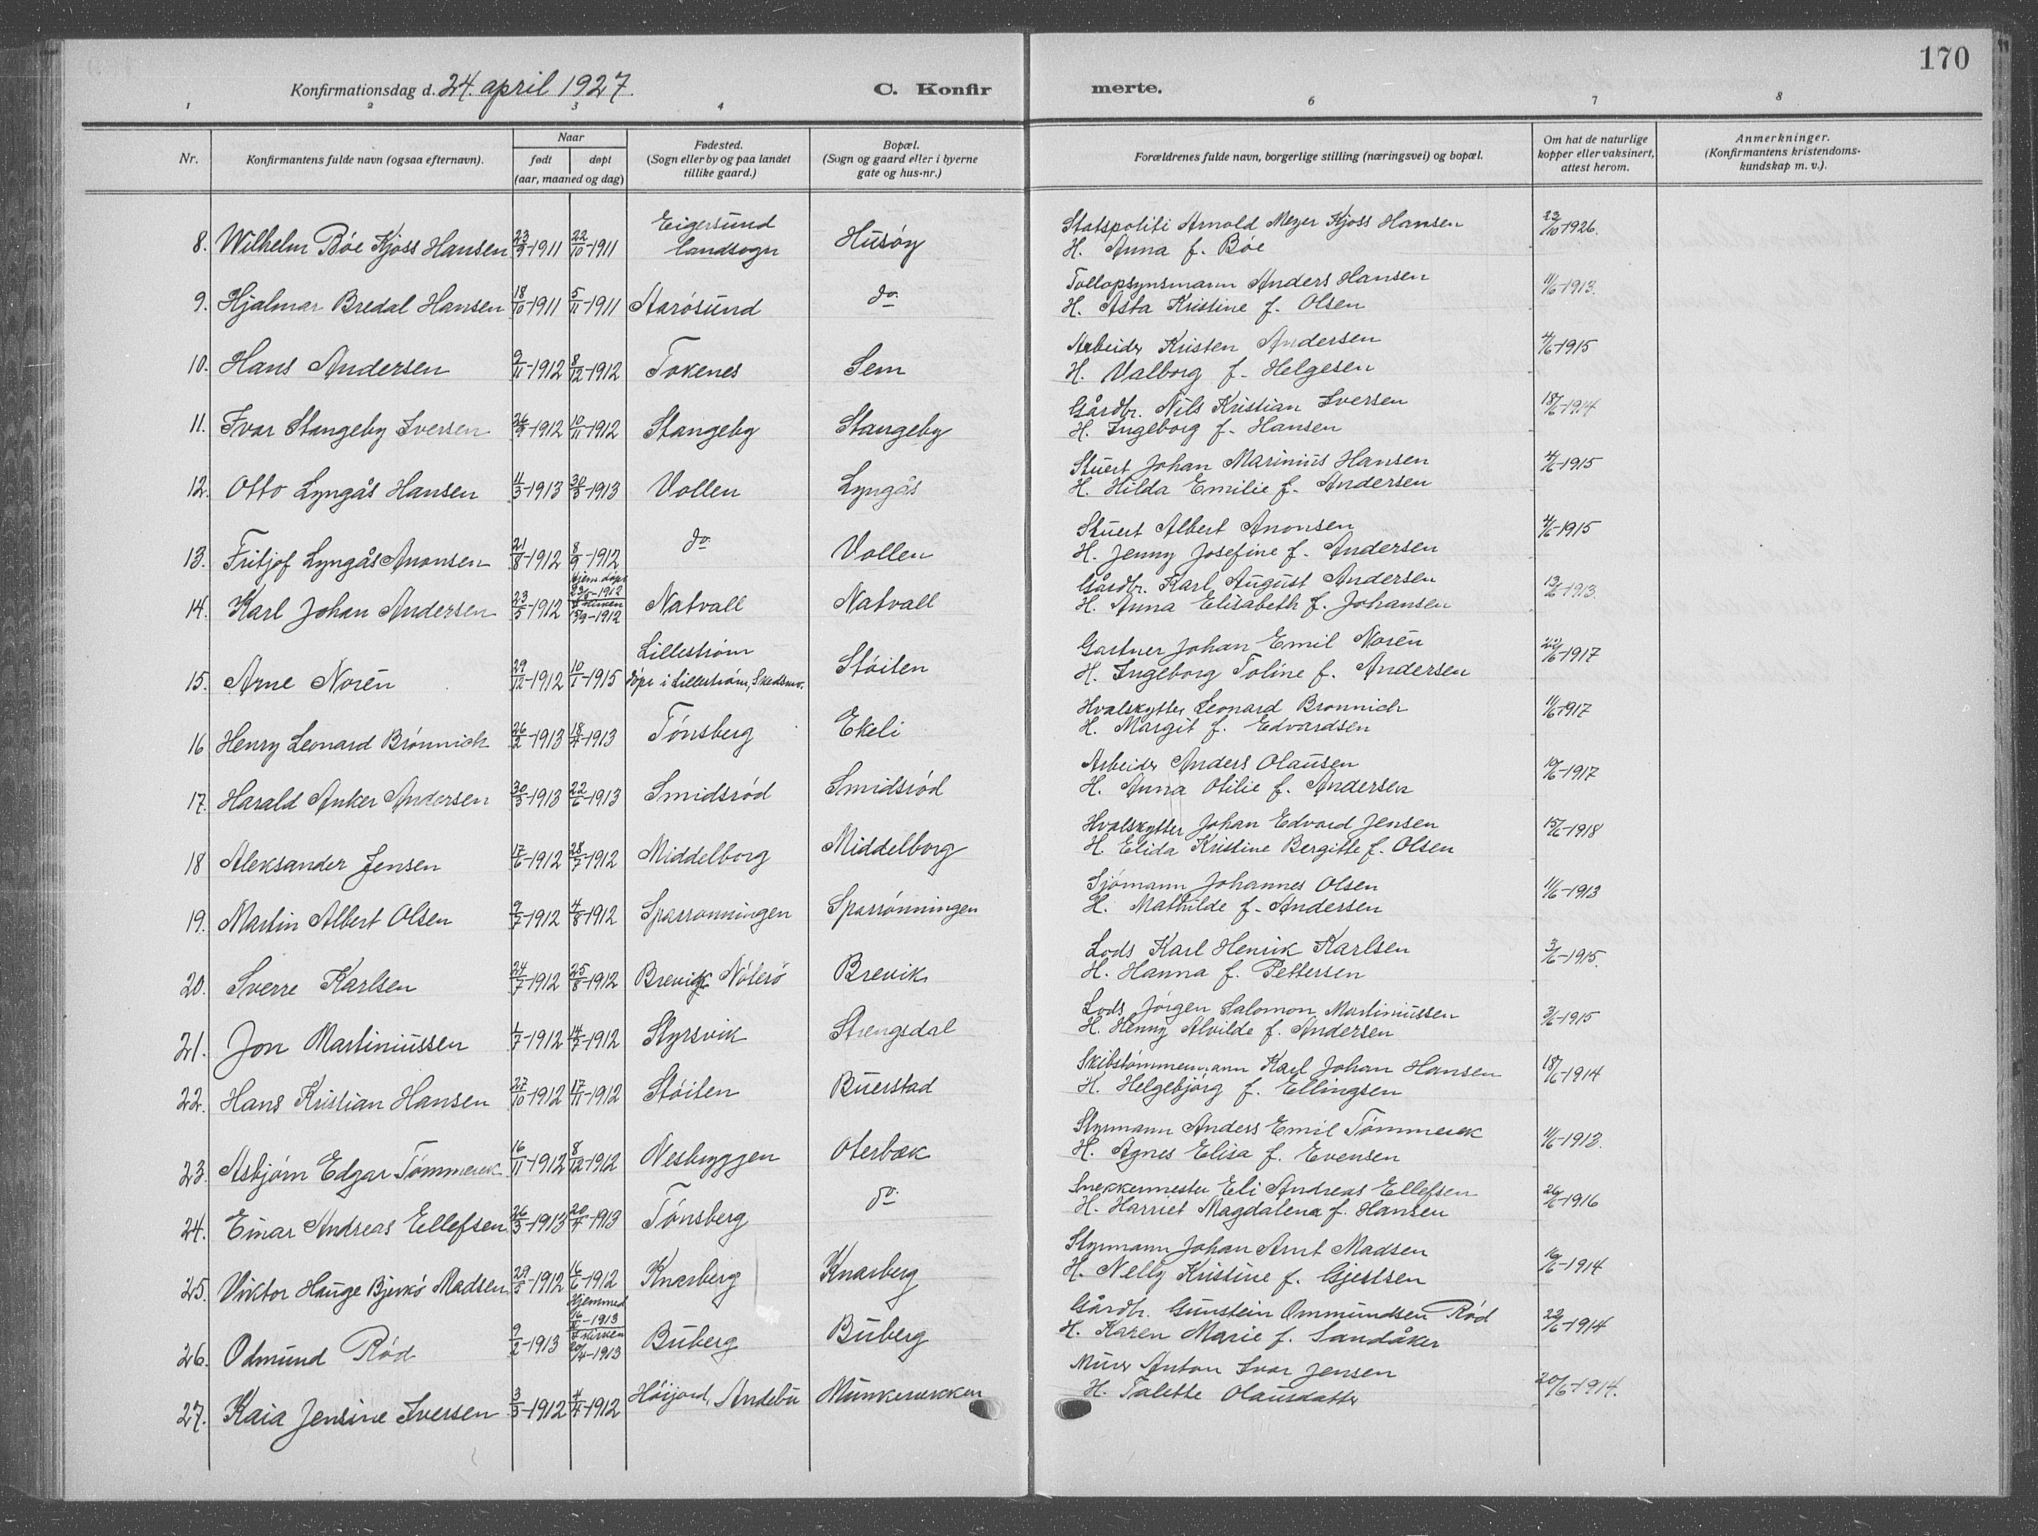 170
Konfirmationsdag d. 24. april 1927.
C. Konfir merte.
1 2 3 4 6 7 8
Nr. Konfirmantens fulde navn (ogsaa efternavn). Naar født døpt (aar, maaned og dag) Fødested. (Sogn eller by og paa landet tillike gaard.) Bopæl. (Sogn og gaard eller i byerne gate og hus-nr.) Forældrenes fulde navn, borgerlige stilling (næringsvei) og bopæl. Om hat de naturlige kopper eller vaksinert, attest herom. Anmerkninger. (Konfirmantens kristendoms-kundskap m. v.).
8. Wilhelm Bøe Kjoss Hansen 23/9-1911 22/10-1911 Eigersund landsogn Husøy Statspoliti Arnold Meyer Kjoss Hansen 23/10-1926.
H. Anna f. Bøe
9. Hjalmar Bredal Hansen 18/10-1911 5/11-1911 Aarøsund do. Tollopsynsmann Anders Hansen 11/6-1913.
H. Asta Kristine f. Olsen
10. Hans Andersen 9/11-1912 8/12-1912 Tokenes Sem Arbeider Kristen Andersen 4/6-1915
H. Valborg f. Helgesen
11. Ivar Stangeby Iversen 26/9-1912 10/11-1912 Stangeby Stangeby Gårdbr. Nils Kristian Iversen 18/6-1914
H. Ingeborg f. Hansen
12. Otto Lyngås Hansen 11/3-1913 30/3-1913 Vollen Lyngås Stuert Johan Marinius Hansen 4/6-1915
H. Hilda Emilie f. Andersen
13. Fritjof Lyngås Anonsen 21/8-1912 8/9-1912 do. Vollen Stuert Albert Anonsen 4/6-1915
H. Jenny Josefine f. Andersen
14. Karl Johan Andersen 23/5-1912 Hjem døpt 23/5-1912 I kirken 15/9-1912 Natvall Natvall Gårdbr. Karl August Andersen 13/6-1913.
H. Anna Elisabeth f. Johansen
15. Arne Norén 29/12-1912 10/1-1915 Lillestrøm døpt i Lillestrøm, Skedsmo. Støiten Gartner Johan Emil Norén 20/6-1917
H. Ingeborg Toline f. Andersen
16 Henry Leonard Brønnich 26/2-1913 18/4-1913 Tønsberg Ekeli Hvalskytter Leonard Brønnich 11/6-1917
H. Margit f. Edvardsen
17. Harald Anker Andersen 30/3-1913 22/6-1913 Smidsrød Smidsrød Arbeider Anders Olausen 19/6-1917
H. Anna Otilie f. Andersen
18 Aleksander Jensen 17/6-1912 28/7-1912 Middelborg Middelborg Hvalskytter Johan Edvard Jensen 15/6-1918
H. Elida Kristine Bergitte f. Olsen
19. Martin Albert Olsen 9/7-1912 4/8-1912 Sparrønningen Sparrønningen Sjømann Johannes Olsen 11/6-1913
H. Mathilde f. Andersen
20. Sverre Karlsen 24/7-1912 25/8-1912 Brevik Nøterø Brevik Lods Karl Henrik Karlsen 3/6-1915.
H. Hanna f. Pettersen
21. Jon Martiniussen 1/7-1912 14/7-1912 Styrsvik Strengsdal Lods Jørgen Salomon Martiniussen 3/6-1915
H. Henny Alvilde f. Andersen
22. Hans Kristian Hansen 27/10-1912 17/11-1912 Støiten Buerstad Skibstømmermann Karl Johan Hansen 18/6-1914
H. Helgebjørg f. Ellingsen
23. Asbjørn Edgar Tømmerek 16/11-1912 8/12-1912 Nesbryggen Oterbæk Styrmann Anders Emil Tømmerek 11/6-1913.
H. Agnes Elisa f. Evensen
24. Einar Andreas Ellefsen 26/3-1913 20/4-1913 Tønsberg do. Snekkermester Eli Andreas Ellefsen 26/6-1916
H. Harriet Magdalena f. Hansen
25. Viktor Hauge Bjerkø Madsen 29/5-1912 16/6-1912 Knarberg Knarberg Styrmann Johan Arnt Madsen 16/6-1914
H. Nelly Kristine f. Gjertsen
26. Odmund Rød 9/2-1913 Hjemmed. 16/2-1913 I kirken 20/4-1913 Buberg Buberg Gårdbr. Gunstein Ommundsen Rød 22/6-1914
H. Karen Marie f. Sandåker
27. Kaia Jensine Iversen 3/3-1912 4/4-1912 Høijord, Andebu Munkerekken Murer Anton Ivar Jensen 20/6-1914.
H. Talette Olausdatter